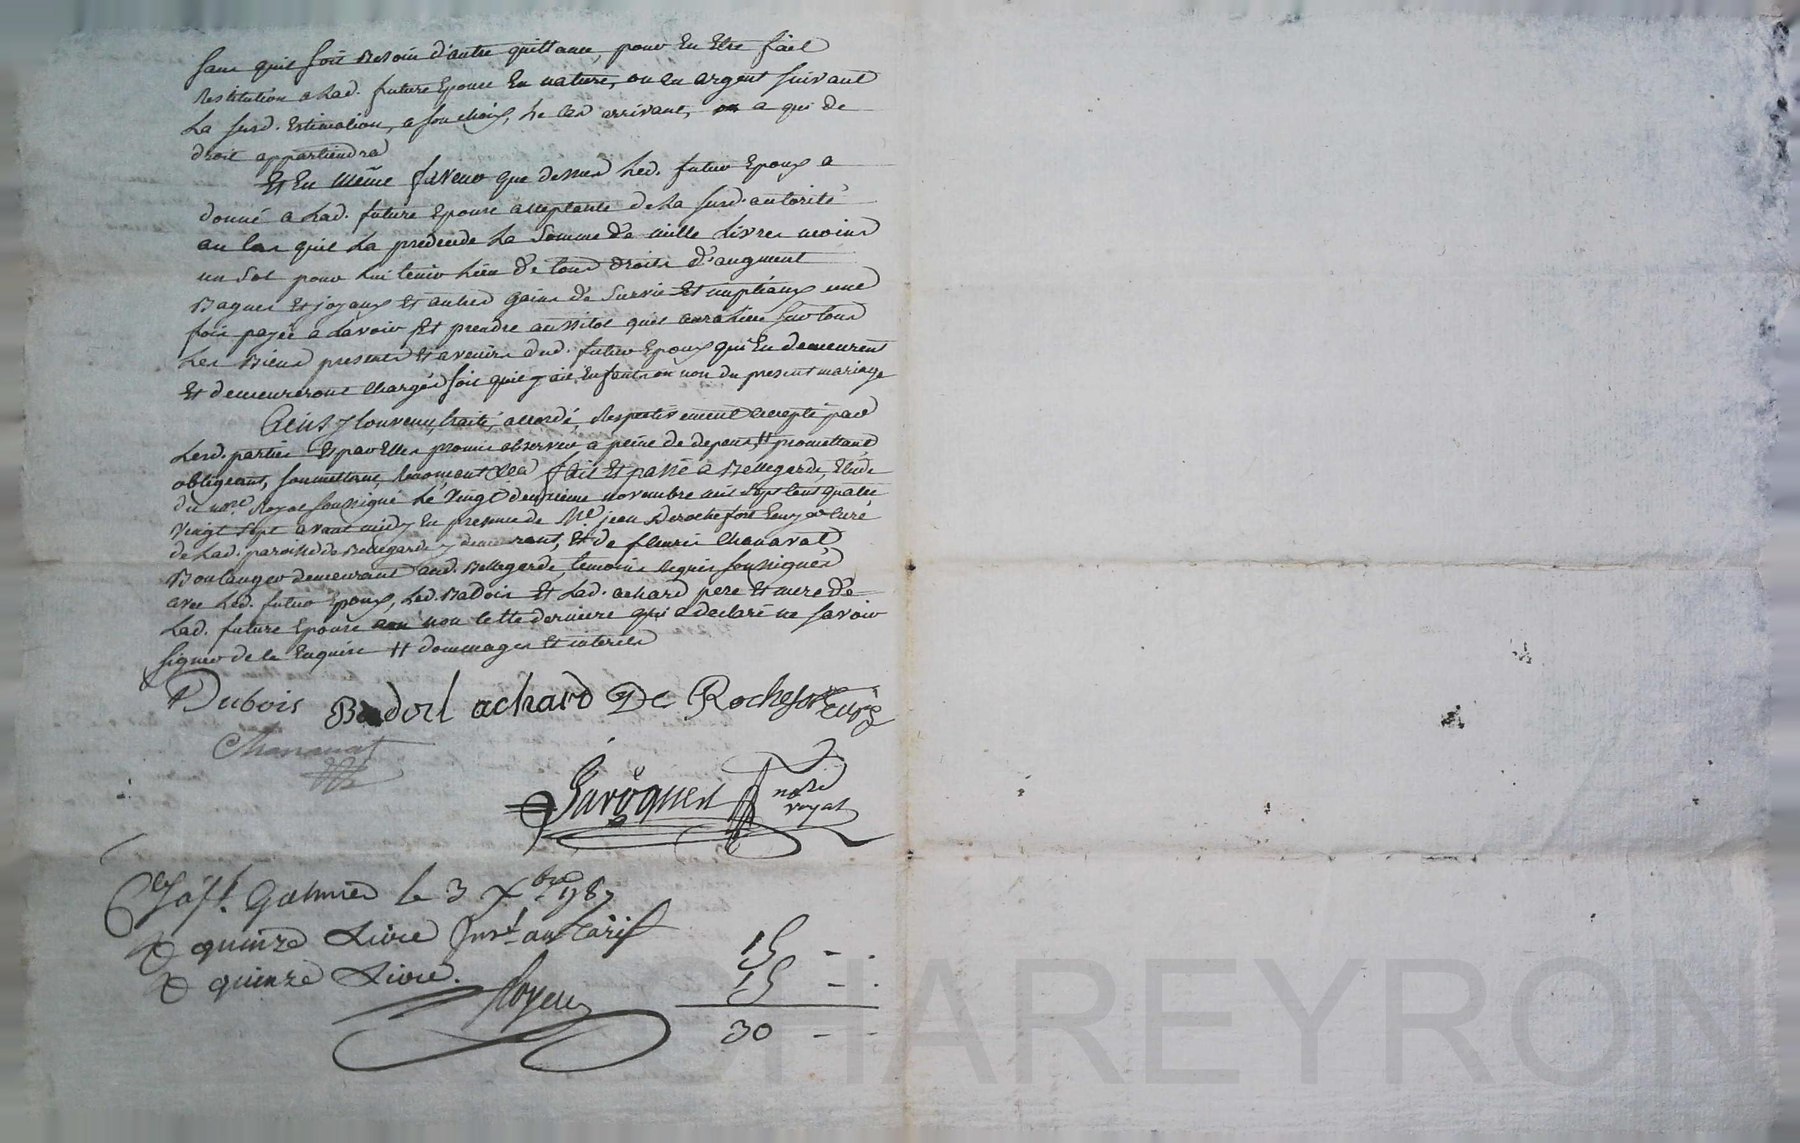 sans quil soit Besoin d'autre quittance, pour En Etre fait
Restitution a Lad. future Epouse En nature, ou en argent suivant
La susd. Estimation, a son choix, Le cas arrivant, ou a qui de
droit appartiendra
Et En même faveur que dessus Led. futur Epoux a
donné a Lad. future Epouse acceptante de La susd. autorité
au Cas quil La predecede La Somme de mille Livres moins
un Sol pour Lui tenir Lieu de tous droits d'augment
Bagues Et joyaux Et autres gains de Survie Et nuptiaux une
fois payée a Lavoir Et prendre aussitot que aura Lieu sur tous
Les Biens presents Et avenirs dud. futur Epoux qui En demeurent
Et demeureront chargés soit quil y ait Enfants ou non du present mariage
Ainsy Convenu, traité, accordé, Respectivement accepté par
Lesd. parties Et par Elles promis observer a peine de depens, # promettant
obligeant, soumettant, Renonçant &ca fait Et passé a Bellegarde, Etude
du nore. Royal soussigné Le vingt deuxieme novembre mil sept cent quatre
vingt sept avant midy En presence de Me. jean Derochefort curé
de Lad. paroisse de Bellegarde y demeurant, Et de fleuri Chanavat
Boulanger demeurant aud. Bellegarde, temoins requis soussignés
avec Led. futur Epoux, Led. Badoil Et Lad. achard pere Et mere de
Lad. future Epouse non cette derniere qui a declaré ne savoir
signer de ce Enquise # dommages Et interets
Dubois Badoil achard De Rochefort Curé
Chanavat
nore
royal
Galmier le 3 Xbre 1787
quinze Livre au tarif
quinze Livre.
15 - .
15 - .
30 - -
CHAREYRON